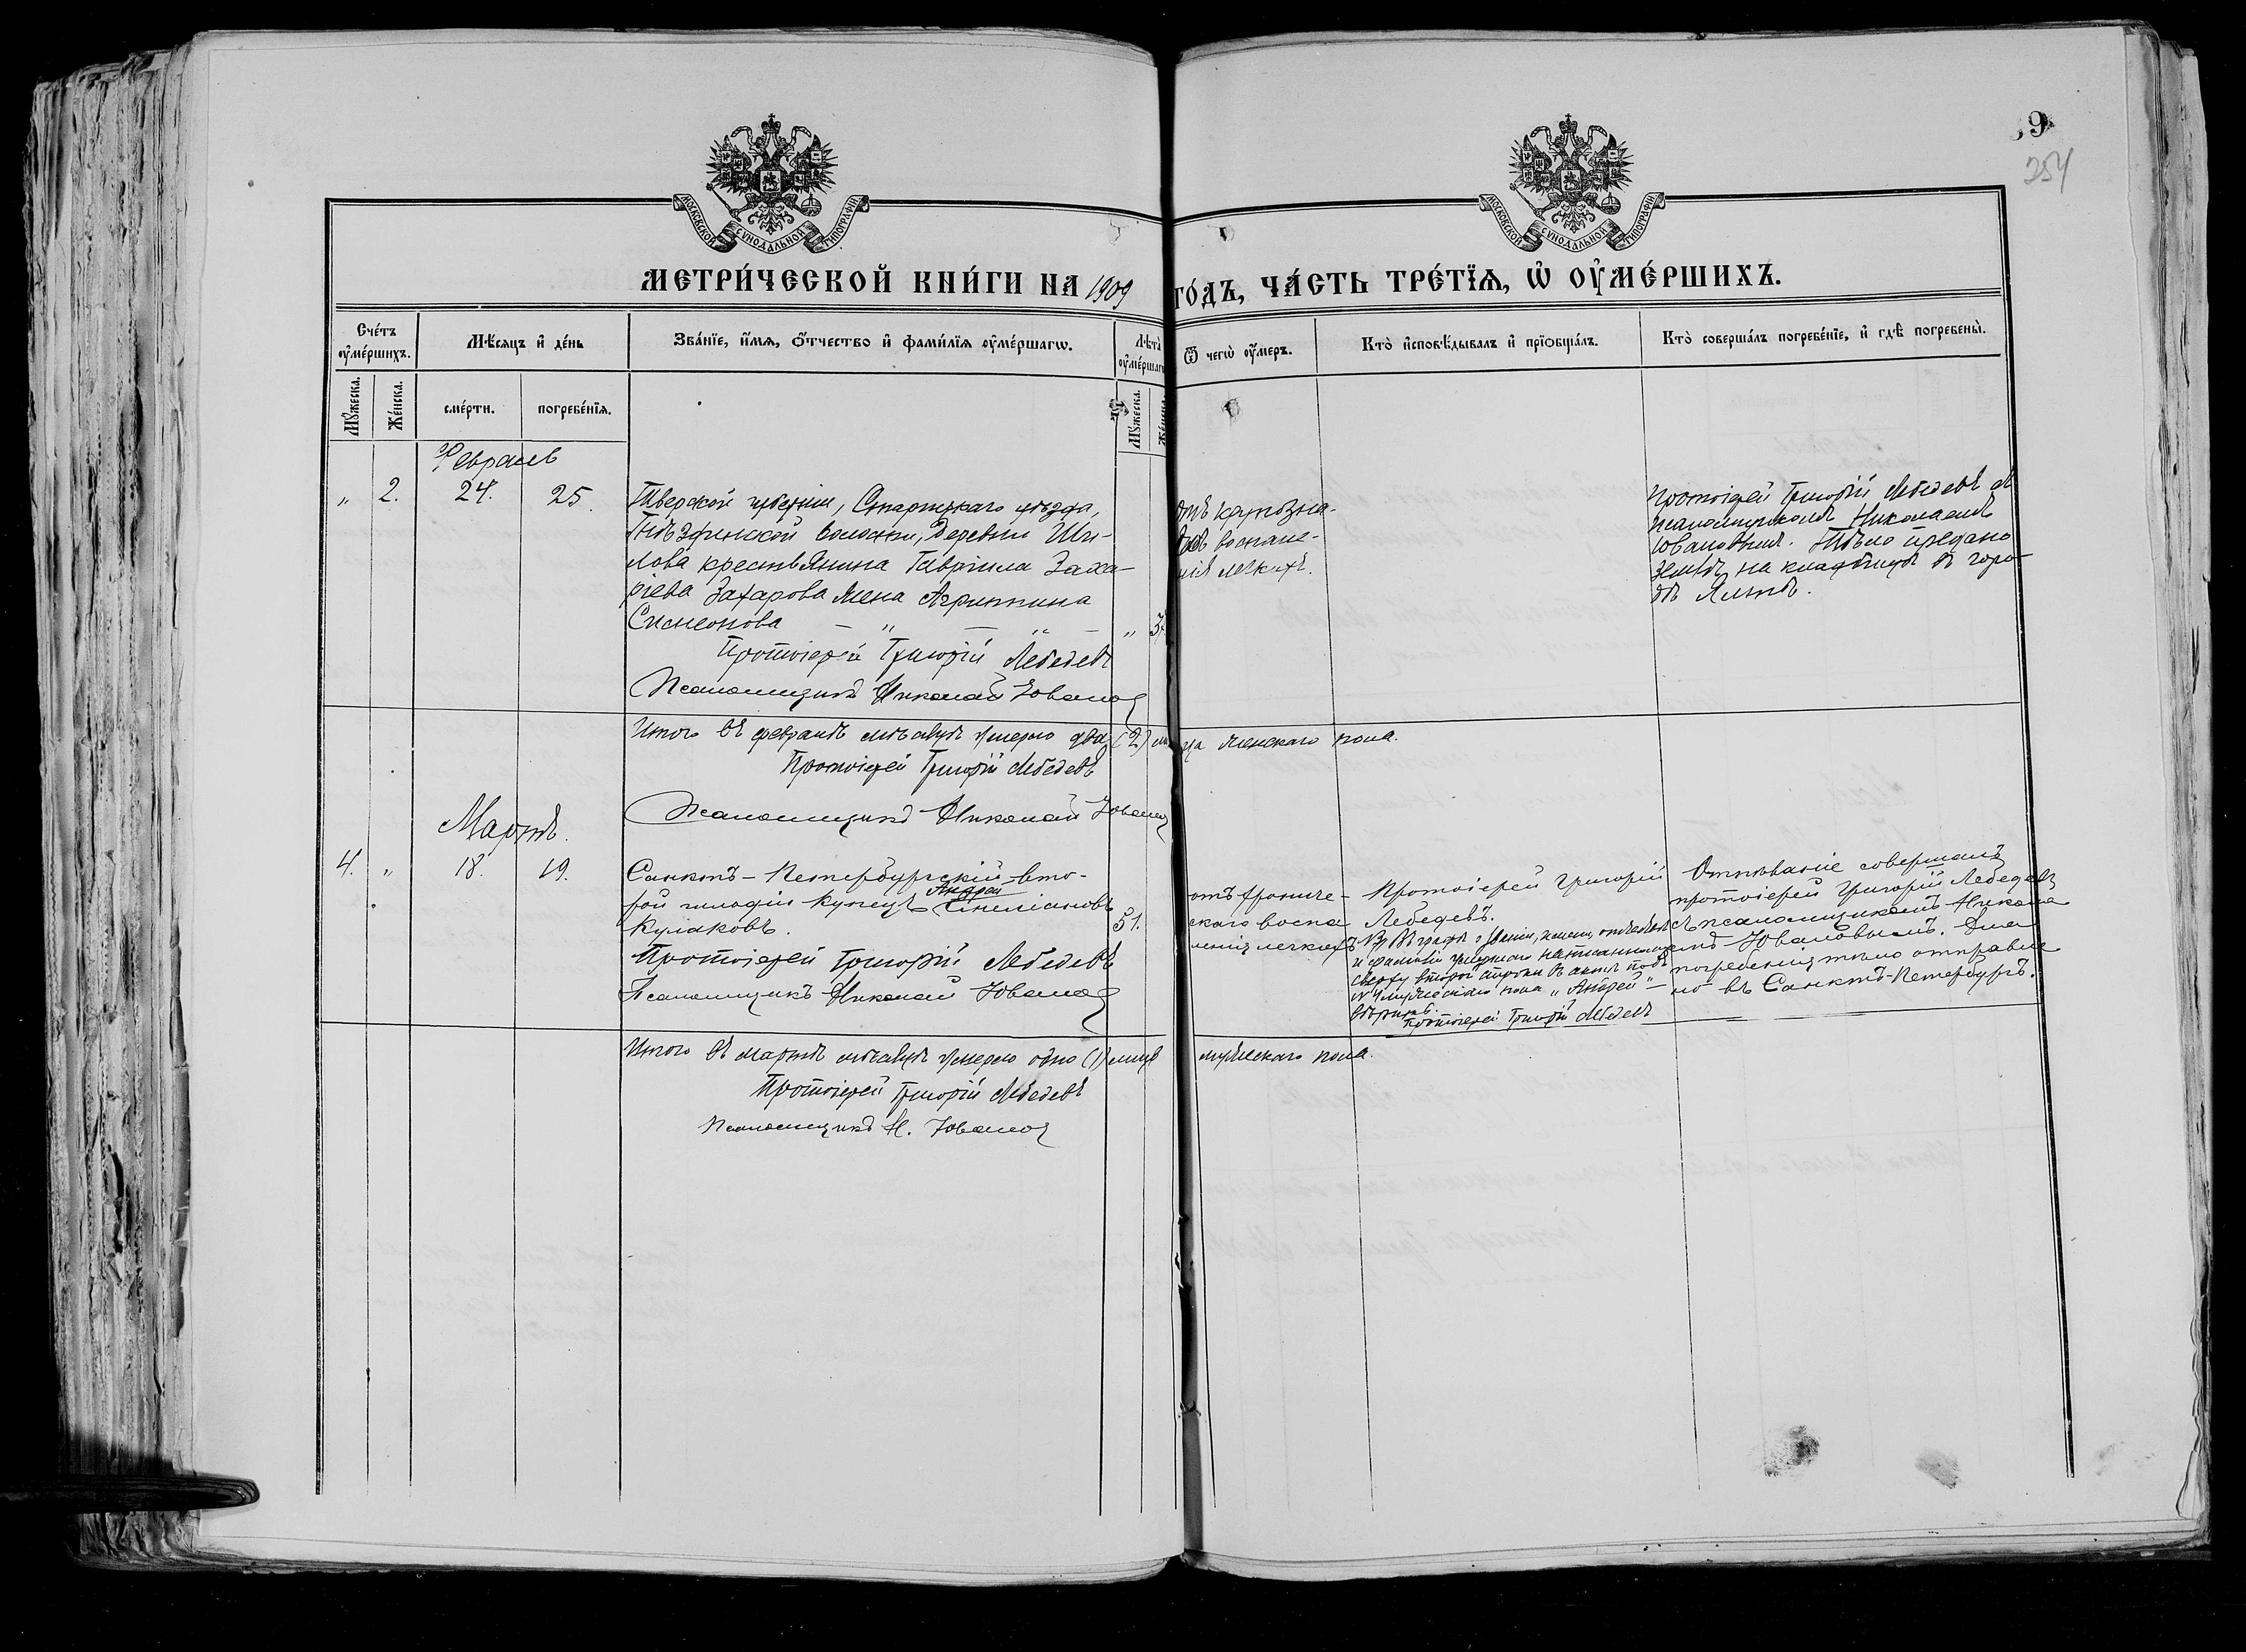 9
254
МОСКОВСКОЙ СУНОДАЛЬНОЙ ТИПОГРАФІИ
МОСКОВСКОЙ СУНОДАЛЬНОЙ ТИПОГРАФІИ
МЕТРИ́ЧЕСКОЙ КНИ́ГИ НА 1909 ГО́ДЪ, ЧА́СТЬ ТРЕ́ТЇѦ, Ѡ҆ ОУ҆МЕ́РШИХЪ.
Сче́тъ оу҆ме́ршихъ.
Мѣ́сяцъ и҆ де́нь
Зва́нїе, и҆́мѧ, ѻ҆́тчество и҆ фами́лїѧ оу҆ме́ршагѡ.
Лѣ́та оу҆ме́ршагѡ
Ѿ чегѡ̀ оу҆́меръ.
Кто̀ и҆сповѣ́дывалъ и҆ прїѡбща́лъ.
Кто̀ соверша́лъ погребе́нїе, и҆ гдѣ̀ погребены̀.
Мꙋ́жеска.
Же́нска.
сме́рти.
погребе́нїѧ.
Мꙋ́жеска.
Февраль
„ 2. 24. 25.
Тверской губерніи, Старицкаго уѣзда,
волости, деревни Ши-
лова крестьянина Гавріила Заха-
ріева Захарова жена Агриппина
Симеонова — „ — „ — „
Протоіерей Григорій Лебедевъ
Псаломщикъ Николай Ювалов
отъ крупозна-
го воспале-
нія легкихъ.
Протоіерей Григорій Лебедевъ съ
псаломщикомъ Николаемъ
Юваловымъ. Тѣло предано
землѣ на кладбищѣ въ горо-
дѣ Ялтѣ.
Итого въ февралѣ мѣсяцѣ умерло два (2) лица женскаго пола.
Протоіерей Григорій Лебедевъ
Псаломщикъ Николай Ювалов
Мартъ.
4. „ 18. 19.
Санктъ-Петербургскій вто-
Андрей
рой гильдіи купецъ
Кулаковъ.
51.
Протоіерей Григорій Лебедевъ
Псаломщикъ Николай Ювалов
отъ хрониче-
скаго воспа-
ленія легкихъ
Протоіерей Григорій
Лебедевъ.
Въ графѣ о званіи, имени, отчествѣ
и фамиліи умершаго написанному
сверху второй строки въ актѣ подъ
№ 4 мужескаго пола „Андрей" —
вѣрить.
Протоіерей Григорій Лебедевъ
Отпѣваніе совершалъ
протоіерей Григорій Лебедевъ
съ псаломщикомъ Никола-
емъ Юваловымъ. Для
погребенія тѣло отправле-
но въ Санктъ-Петербургъ.
Итого въ мартѣ мѣсяцѣ умерло одно (1) лицо мужескаго пола.
Протоіерей Григорій Лебедевъ
Псаломщикъ Н. Ювалов